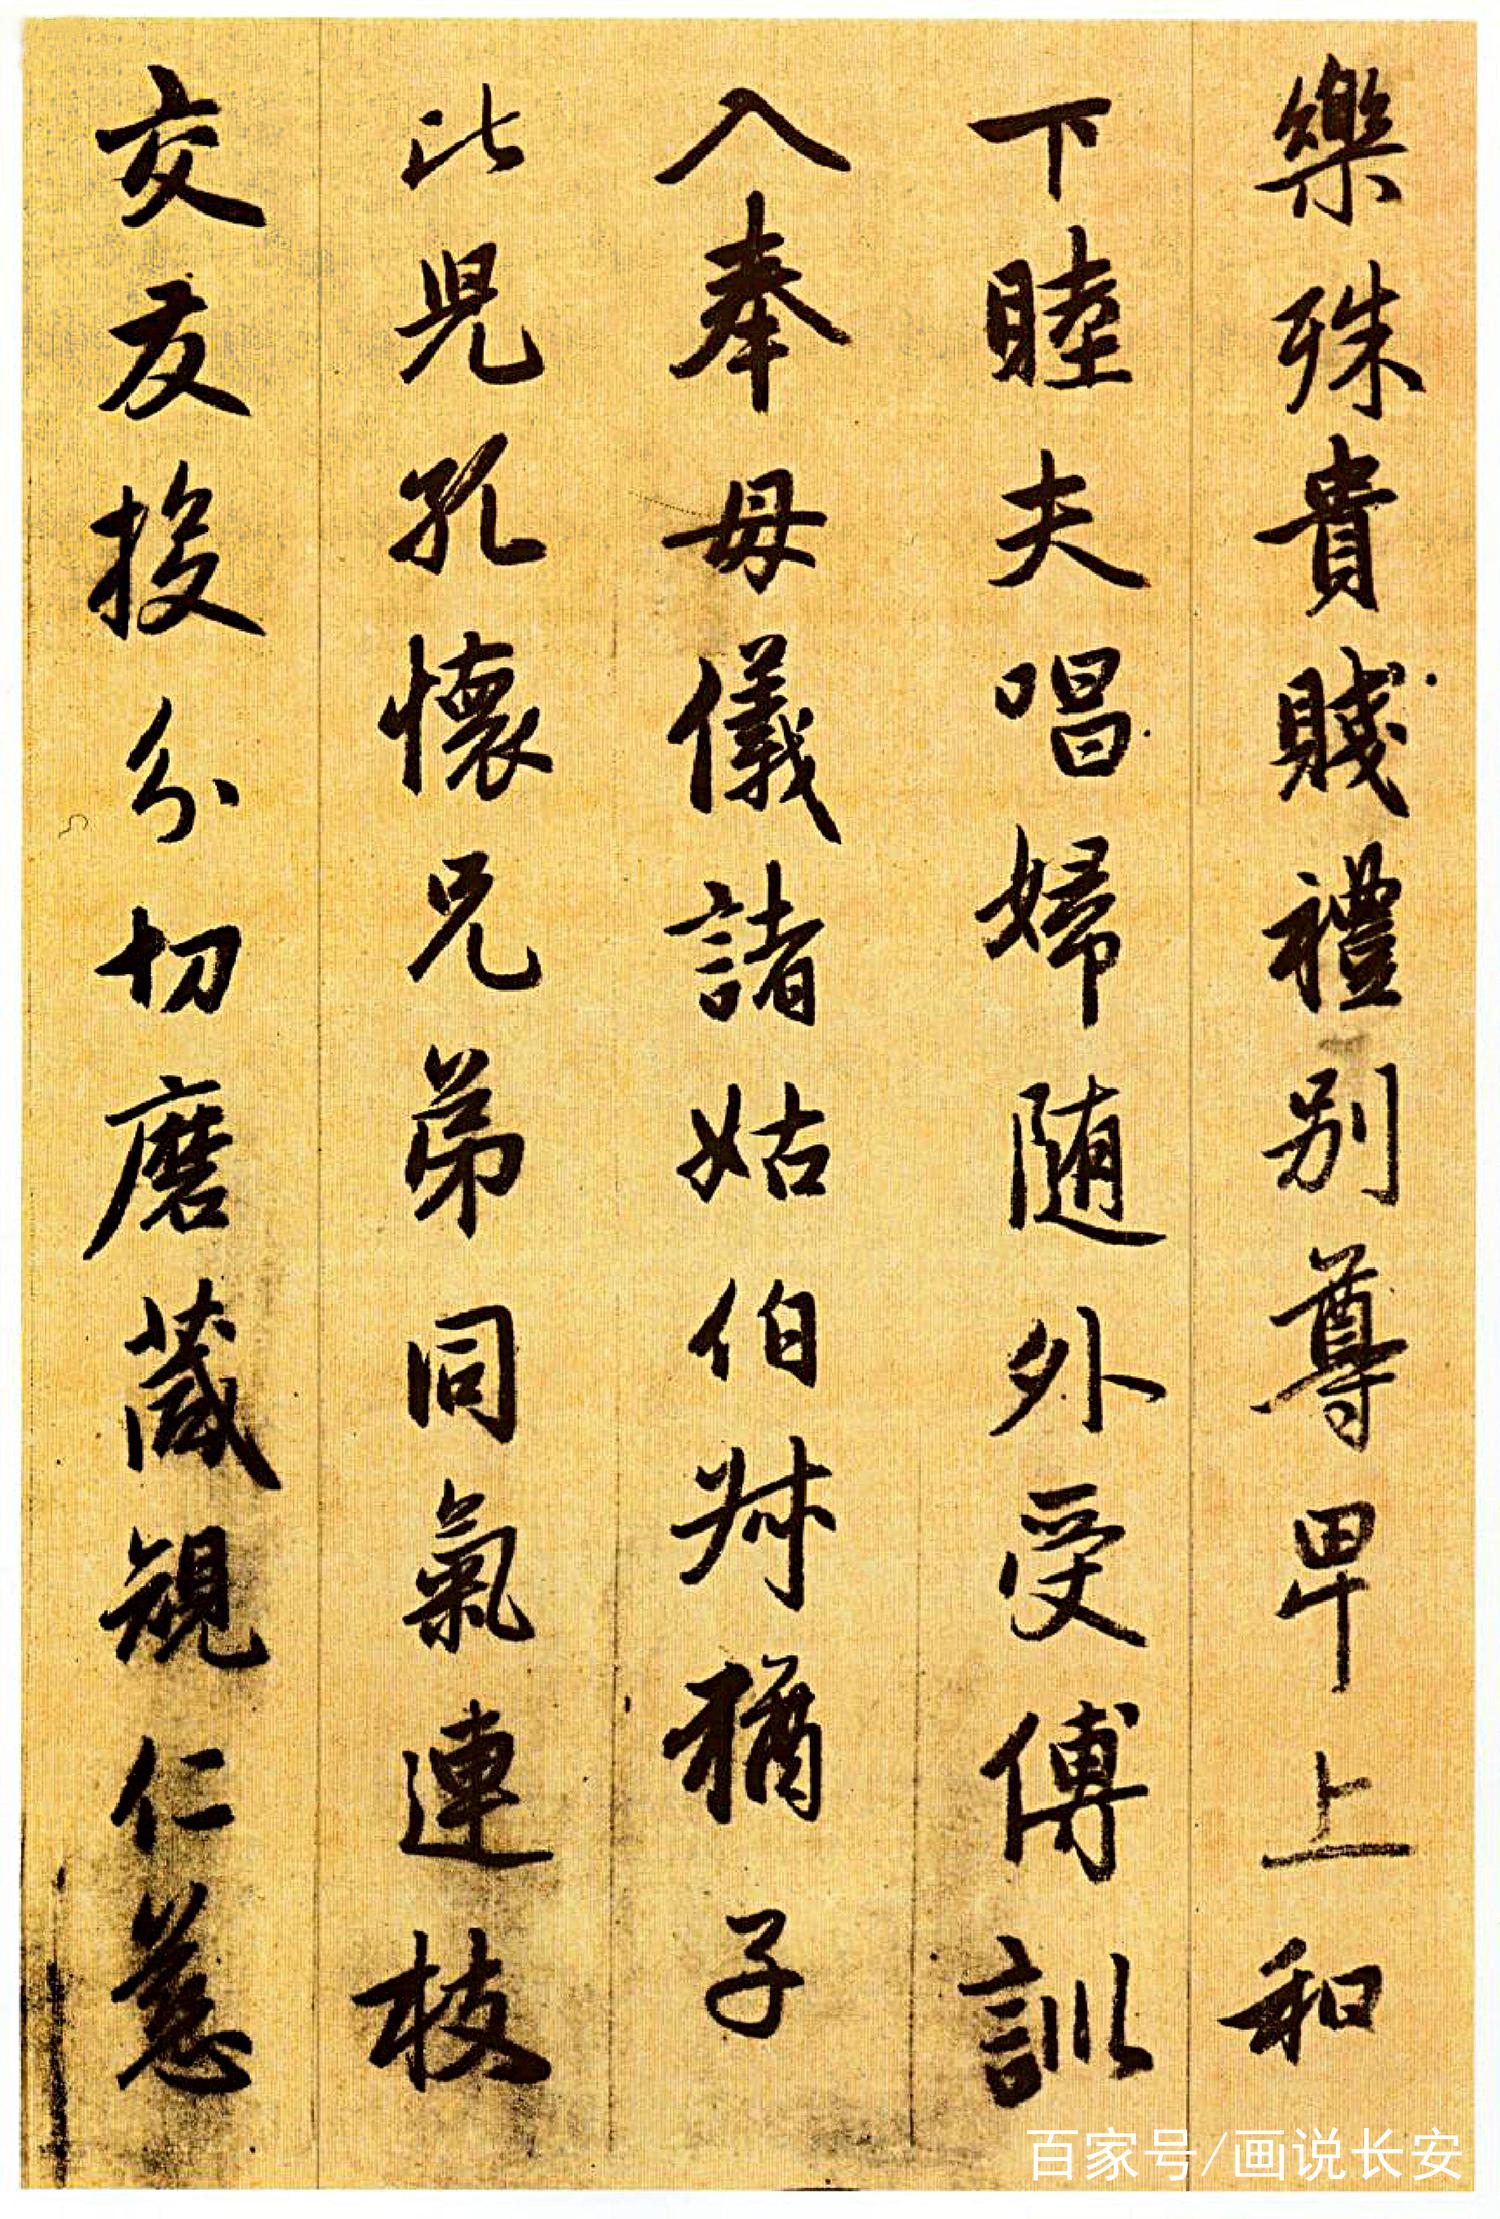 樂殊貴賤禮別尊卑上和
下睦夫唱婦随外受傅訓
入奉母儀諸姑伯叔猶子
比兒孔懷兄弟同氣連枝
交友投分切磨箴規仁慈
百家号/画说长安